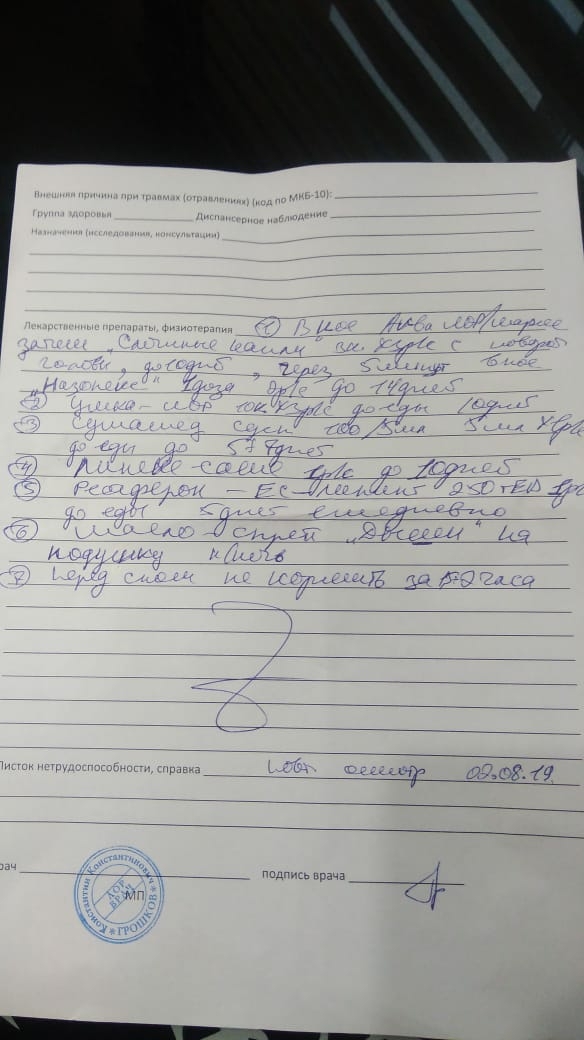 Внешняя причина при травмах (отравлениях) (код по МКБ-10):
Группа здоровья Диспансерное наблюдение
Назначения (исследования, консультации)
Лекарственные препараты, физиотерапия 1 В нос Аква Лор/
затем „ капли" х3р/с с поворот
головы, до 10 дней, через 5 минут в нос
„Назонекс" 1 доза р/с до 14 дней
2 10к х3р/с до еды 10 дней
3 Сумамед сусп 100/5мл 5мл х1р/с
до еды до дней
4 р/с до 10 дней
5 Реаферон-ЕС-Липинт 250т ЕД 1р/с
до еды 5 дней ежедневно
6 Масло-спрей „Дыши" на
подушку н/ночь
7 Перед сном не кормить за часа
Листок нетрудоспособности, справка повт. осмотр 02.08.19.
рач подпись врача
МП
Константин Константинович
ЛОР
ВРАЧ
ГРОШКОВ